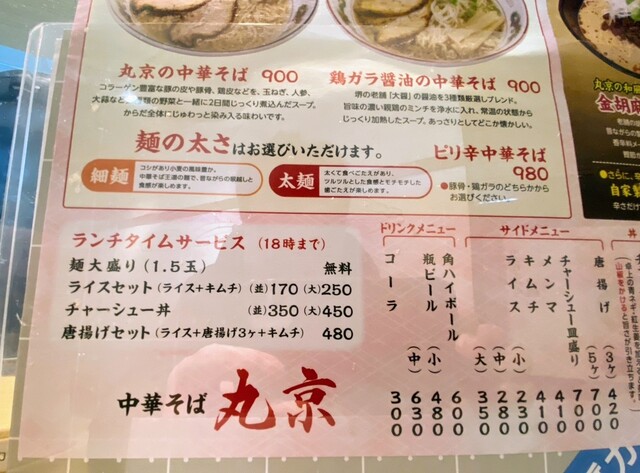 丸京の中華そば 900
コラーゲン豊富な豚の皮や豚骨、鶏皮などを、玉ねぎ、人参、
大蒜など、種類の野菜と一緒に2日間じっくり煮込んだスープ。
からだ全体にじゅわっと染み入る味わいです。
鶏ガラ醤油の中華そば 900
堺の老舗「大醤」の醤油を3種類厳選しブレンド。
旨味の濃い親鶏のミンチを浄水に入れ、常温の状態から
じっくり加熱したスープ。あっさりとしてどこか懐かしい。
麺の太さはお選びいただけます。
細麺
コシがあり小麦の風味豊か。
中華そば王道の麺で、昔ながらの喉越しと
食感が楽しめます。
太麺
太くて食べごたえがあり、
ツルツルとした食感とモチモチした
噛ごたえが楽しめます。
ピリ辛中華そば
980
●豚骨・鶏ガラのどちらかから
お選びください。
丸京の和風
金胡麻
ランチタイムサービス (18時まで)
麺大盛り(1.5玉) 無料
ライスセット(ライス+キムチ) (並)170 (大)250
チャーシュー丼 (並)350 (大)450
唐揚げセット(ライス+唐揚げ3ヶ+キムチ) 480
中華そば 丸京
ドリンクメニュー
角ハイボール
瓶ビール (小) 480
(中) 630
コーラ 300
サイドメニュー
唐揚げ (3ヶ) 420
(5ヶ) 700
チャーシュー皿盛り
メンマ
キムチ
ライス (小) 230
(中) 280
(大) 350